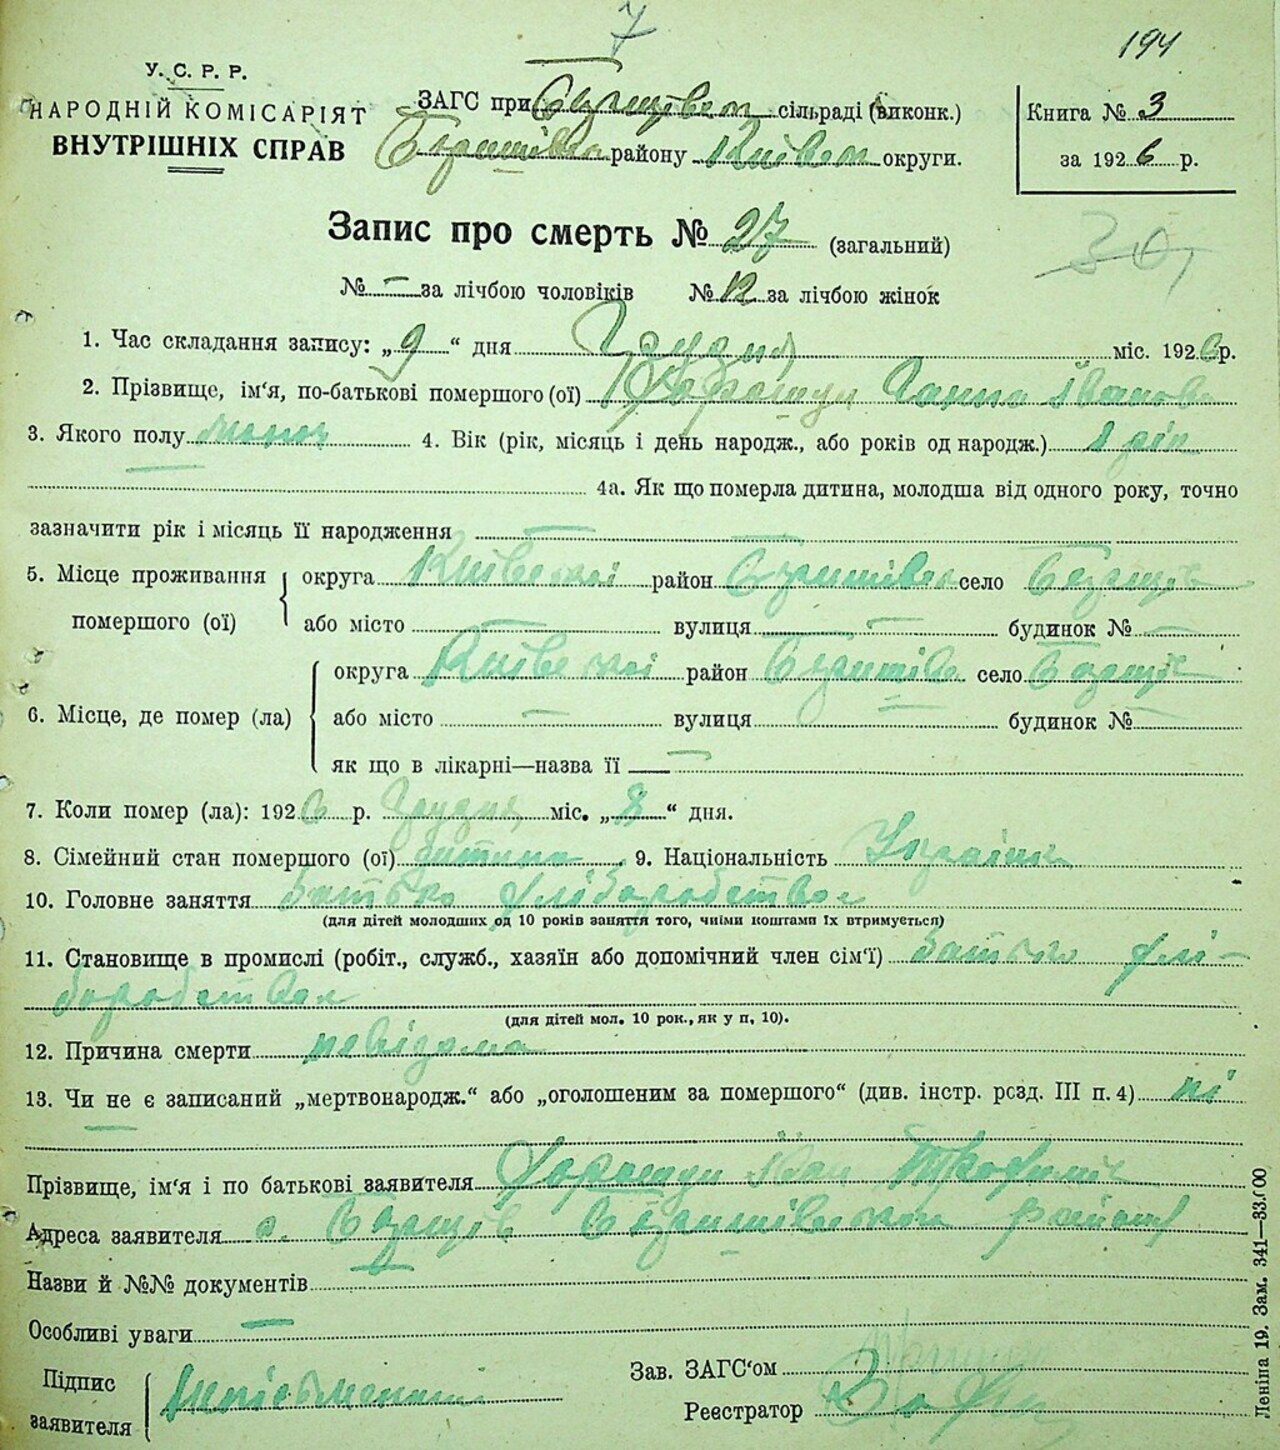 7
194
У. С. Р. Р.
НАРОДНІЙ КОМІСАРІЯТ
ВНУТРІШНІХ СПРАВ
ЗАГС при сільраді (виконк.)
району Київськ округи.
Книга № 3
за 1926 р.
Запис про смерть № 27 (загальний)
30
№ — за лічбою чоловіків № 12 за лічбою жінок
1. Час складання запису: „9“ дня Грудня міс. 1926 р.
2. Прізвище, ім‘я, по-батькові помершого (ої) Ганна Іванов
3. Якого полу 4. Вік (рік, місяць і день народж., або років од народж.) 1 рік
4а. Як що померла дитина, молодша від одного року, точно
зазначити рік і місяць її народження —
5. Місце проживання помершого (ої)
округа Київської район село
або місто — вулиця — будинок № —
6. Місце, де помер (ла)
округа Київської район село
або місто — вулиця — будинок № —
як що в лікарні—назва її —
7. Коли помер (ла): 1926 р. Грудня міс. „8“ дня.
8. Сімейний стан помершого (ої) дитина 9. Національність Українка
10. Головне заняття батько хліборобство
(для дітей молодших од 10 років заняття того, чиїми коштами їх втримується)
11. Становище в промислі (робіт., служб., хазяїн або допомічний член сім‘ї) батько хлі-
боробство
(для дітей мол. 10 рок., як у п, 10).
12. Причина смерти невідома
13. Чи не є записаний „мертвонародж.“ або „оголошеним за помершого“ (див. інстр. розд. III п. 4) ні
Прізвище, ім‘я і по батькові заявителя Іван Трофиміч
Адреса заявителя с. району
Назви й №№ документів
Особливі уваги —
Підпис заявителя неписьменний
Зав. ЗАГС‘ом
Реєстратор
Леніна 19. Зам. 341—83.000